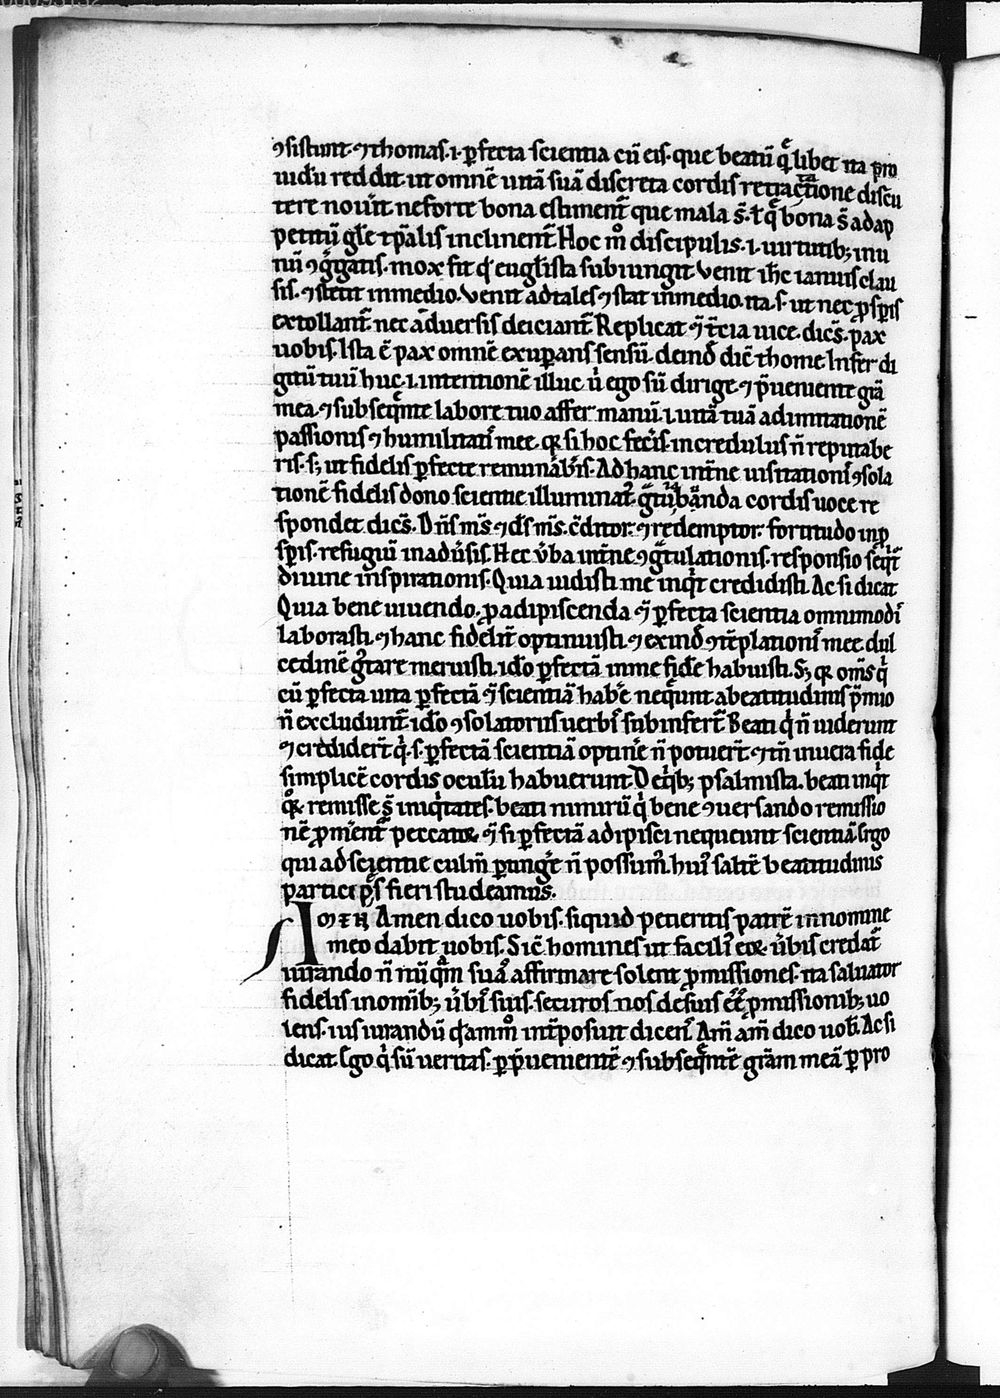 ꝯsistunt. ⁊ thomas .i. ꝑfecta scientia cū eis. que beatū q̄libet ita pro
uidū reddit. ut omnē uitā suā discreta cordis retractatione discu
tere nouit. ne forte bona estiment̄ que mala s̄. t̄ q̄ bona s̄ ad ap
petitū gl̄e tp̄alis inclinent̄. Hoc m̊ discipulis .i. uirtutib; inu
nū ꝯg̃gatis. mox fit qđ eugl̄ista subiungit. Venit ih̄c ianuis clau
sis. ⁊ stetit in medio. Venit ad tales ⁊ stat in medio. ita .s. ut nec ꝓsꝑis
extollant̄. nec aduersis deiciant̄. Replicat ⁊ t̄cia uice. dicēs. pax
uobis. Ista ē pax omnē exuꝑans sensū. deinđ dic̄ thome. Infer di
gitū tuū huc .i. intentionē illuc u̇ ego sū dirige. ⁊ p̄ueniente gr̄a
mea. ⁊ subseq̄nte labore tuo affer manū .i. uitā tuā ad imitationē
passionis ⁊ humilitatis mee. qꝛ si hoc fec̄is. incredulus n̄ reputabe
ris. s; ut fidelis ꝑfecte remun̄ab̄is. Ad hanc int̄ne uisitationis ꝯsola
tionē fidelis dono scientie illuminat᷒. gr̄tulabunda cordis uoce re
spondet dicēs. Dn̄s m̄s ⁊ ds̄ m̄s. c̄ditor. ⁊ redemptor. fortitudo in ꝓ
sꝑis. refugiū in adu̇sis. Hec u̇ba int̄ne ꝯgr̄tulationis. responsio seqit̄
diuine inspirationis. Quia uidisti me inq̇t credidisti. Ac si dicat
Quia bene uiuendo. ꝓ adipiscenda ⁊ ꝑfecta scientia omnimodis
laborasti. ⁊ hanc fidelit̄ optinuisti. ⁊ exinđ ꝯt̄plationis mee dul
cedinē g̃tare meruisti. iđo ꝑfectā in me fidē habuisti. S; qꝛ om̄s q̇
cū ꝑfecta uita ꝑfectā ⁊ scientiā hab̄e neq̄unt a beatitudinis p̄mio
n̄ excludunt̄. iđo ꝯsolatoriis uerbis subinfert̄. Beati q̇ n̄ uiderunt
⁊ credidert̄. q̇ .s. ꝑfectā scientiā optin̄e n̄ potuert̄. ⁊ tn̄ in uera fide
simplicē cordis oculū habuerunt. De q̇b; psalmista. beati inq̇t
quoꝝ remisse s̄ iniq̇tates. beati nimirū q̇ bene ꝯuersando remissio
nē ꝓment̄ peccatoꝝ. ⁊ si ꝑfectā adipisci nequeunt scientiā. Ergo
qui ad scientie culm̄ ꝑtinḡe n̄ possum᷒. hui᷒ salt̄ē beatitudinis
participes fieri studeamus.
Amen dico uobis. siquid petieritis patrē in nomine
meo dabit uobis. Sic̄ homines ut facili᷒ eoꝝ u̇bis credat̄
iurando n̄ nūq̄m suas affirmare solent ꝓmissiones. ita saluator
fidelis in omīb; u̇bis suis. securos nos de suis eē̄ ꝓmissionib; uo
lens. ius iurandū qđammo int̄posuit dicens. Am̄ am̄ dico uob̄. Ac si
dicat. Ego q̇ sū ueritas. ꝑ p̄uenientē ⁊ subseq̄ntē gr̄am meā ꝑ pro